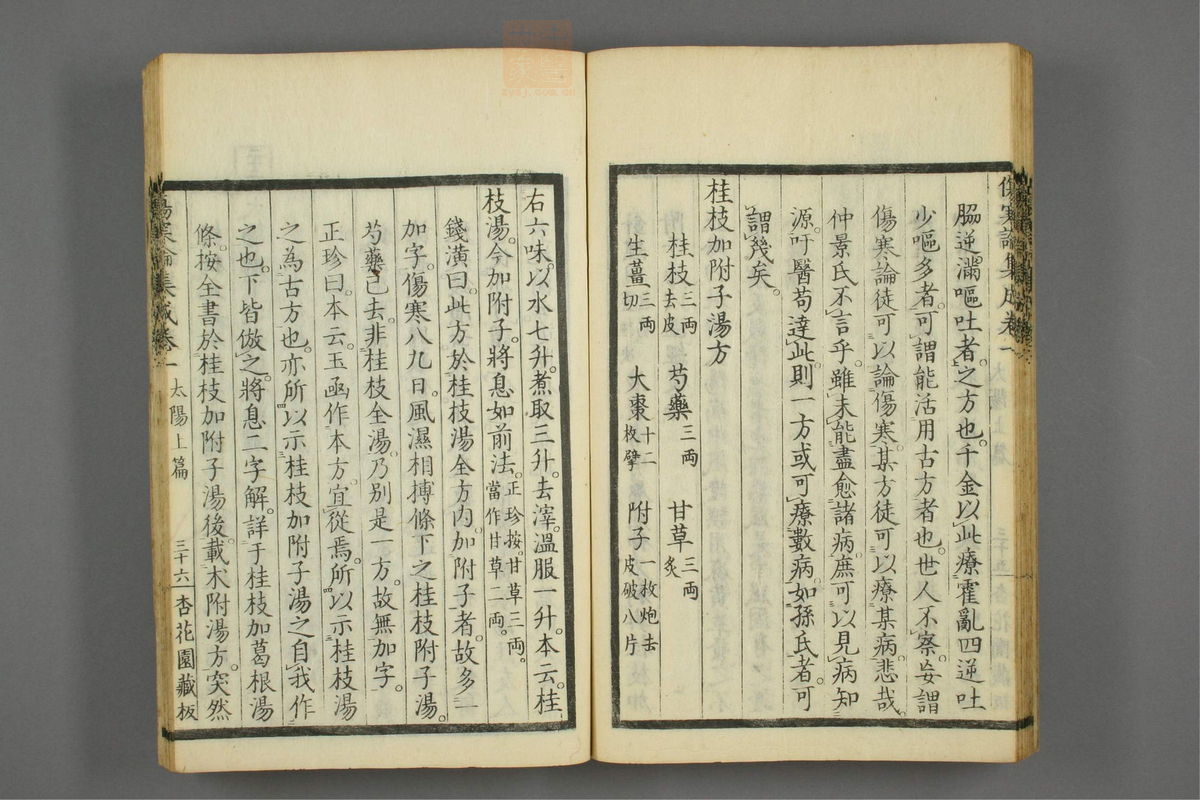 傷寒論集成卷一
脇逆滿嘔吐者之方也千金以此療霍亂四逆吐
少嘔多者可謂能活用古方者也世人不察妄謂
傷寒論徒可以論傷寒某方徒可以療某病悲哉
仲景氏不言乎雖未能盡愈諸病庶可以見病知
源吁醫苟達此則一方或可療數病如孫氏者可
謂幾矣
桂枝加附子湯方
桂枝三兩去皮 芍藥三兩 甘草三兩炙
生薑三兩切 大棗十二枚擘 附子一枚炮去皮破八片
右六味以水七升煮取三升去滓溫服一升本云桂
枝湯今加附子將息如前法正珍按甘草三兩當作甘草二兩
錢潢曰此方於桂枝湯全方內加附子者故多一
加字傷寒八九日風濕相搏條下之桂枝附子湯
芍藥已去非桂枝全湯乃别是一方故無加字
正珍曰本云玉函作本方宜從焉所以示桂枝湯
之為古方也亦所以示桂枝加附子湯之自我作
之也下皆倣之將息二字解詳于桂枝加葛根湯
條按全書於桂枝加附子湯後載朮附湯方突然
傷寒論集成卷一 太陽上篇 三十六 杏花園藏板